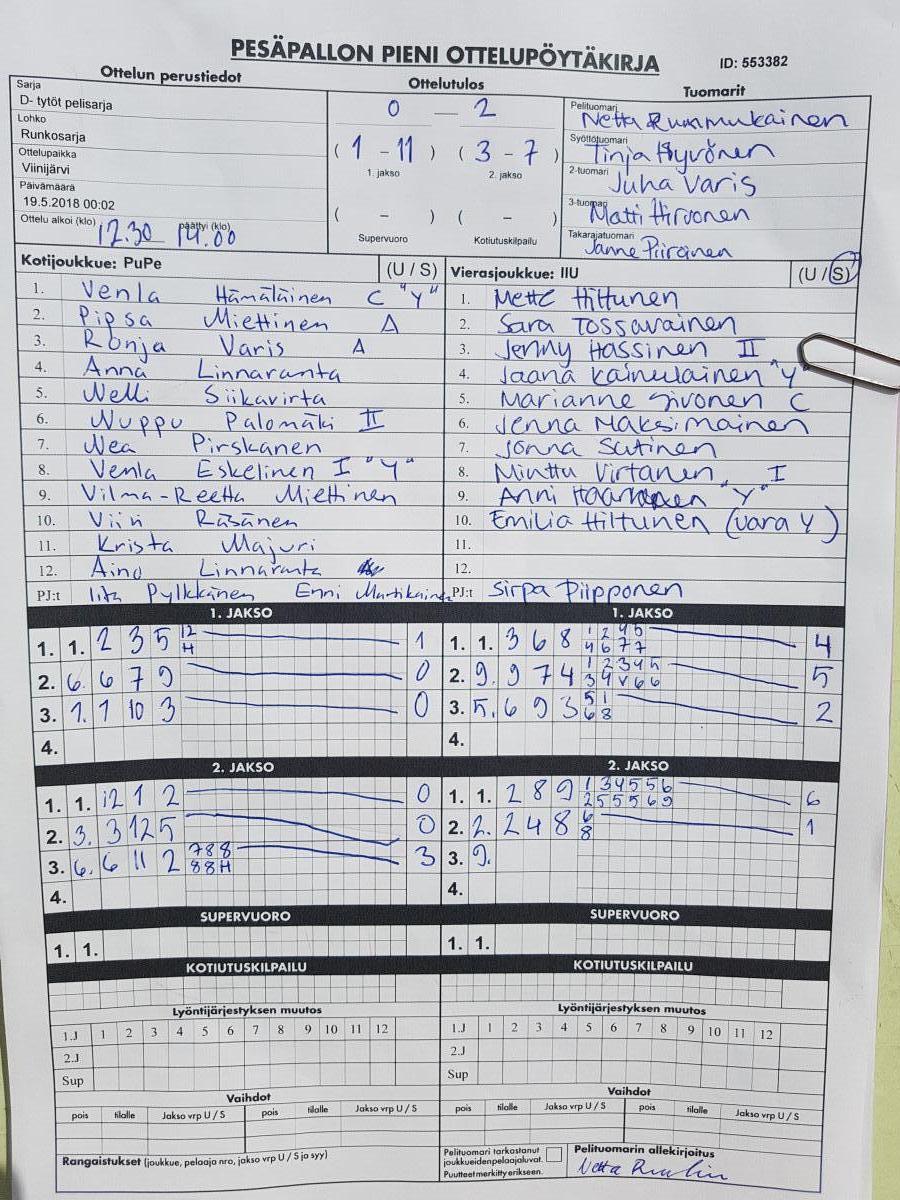 PESÄPALLON PIENI OTTELUPÖYTÄKIRJA ID: 553382
Ottelun perustiedot
Sarja
D- tytöt pelisarja
Lohko
Runkosarja
Ottelupaikka
Viinijärvi
Päivämäärä
19.5.2018 00:02
Ottelu alkoi (klo) 12.30 päättyi (klo) 14.00
Ottelutulos
0 — 2
( 1 - 11 ) ( 3 - 7 )
1. jakso 2. jakso
( - ) ( - )
Supervuoro Kotiutuskilpailu
Tuomarit
Pelituomari Netta Rummukainen
Syöttötuomari Tinja Hyvönen
2-tuomari Juha Varis
3-tuomari Matti Hirvonen
Takarajatuomari Janne Piirainen
Kotijoukkue: PuPe (U / S)
1. Venla Hämäläinen C "Y"
2. Pipsa Miettinen A
3. Ronja Varis A
4. Anna Linnaranta
5. Nelli Siikavirta
6. Nuppu Palomäki II
7. Nea Pirskanen
8. Venla Eskelinen I "Y"
9. Vilma-Reetta Miettinen
10. Viivi Räsänen
11. Krista Majuri
12. Aino Linnaranta
PJ:t Iita Pylkkänen Enni Martikainen
Vierasjoukkue: IIU (U / S)
1. Mette Hiltunen
2. Sara Tossavainen
3. Jenny Hassinen II
4. Jaana Kainulainen "Y"
5. Marianne Sivonen C
6. Jenna Maksimainen
7. Jonna Sutinen
8. Minttu Virtanen I
9. Anni "Y"
10. Emilia Hiltunen (vara Y)
11.
12.
PJ:t Sirpa Piipponen
1. JAKSO
1. 1. 2 3 5 12 H 1
2. 6. 6 7 9 0
3. 1. 1 10 3 0
4.
1. JAKSO
1. 1. 3 6 8 1 2 4 5 4
4 6 7 7
2. 9. 9 7 4 1 2 3 4 5 5
3 4 V 6 6
3. 5. 6 9 3 5 1 2
6 8
4.
2. JAKSO
1. 1. 12 1 2 0
2. 3. 3 12 5 0
3. 6. 6 11 2 7 8 8 3
8 8 H
4.
2. JAKSO
1. 1. 2 8 9 1 3 4 5 5 6 6
2 5 5 5 6 9
2. 2. 2 4 8 6 1
8
3. 9.
4.
SUPERVUORO
1. 1.
SUPERVUORO
1. 1.
KOTIUTUSKILPAILU
KOTIUTUSKILPAILU
Lyöntijärjestyksen muutos
1.J 1 2 3 4 5 6 7 8 9 10 11 12
2.J
Sup
Lyöntijärjestyksen muutos
1.J 1 2 3 4 5 6 7 8 9 10 11 12
2.J
Sup
Vaihdot
pois tilalle Jakso vrp U / S pois tilalle Jakso vrp U / S
Vaihdot
pois tilalle Jakso vrp U / S pois tilalle Jakso vrp U / S
Rangaistukset (joukkue, pelaaja nro, jakso vrp U / S ja syy)
Pelituomari tarkastanut
joukkueiden pelaajaluvat.
Puutteet merkitty erikseen.
Pelituomarin allekirjoitus
Netta